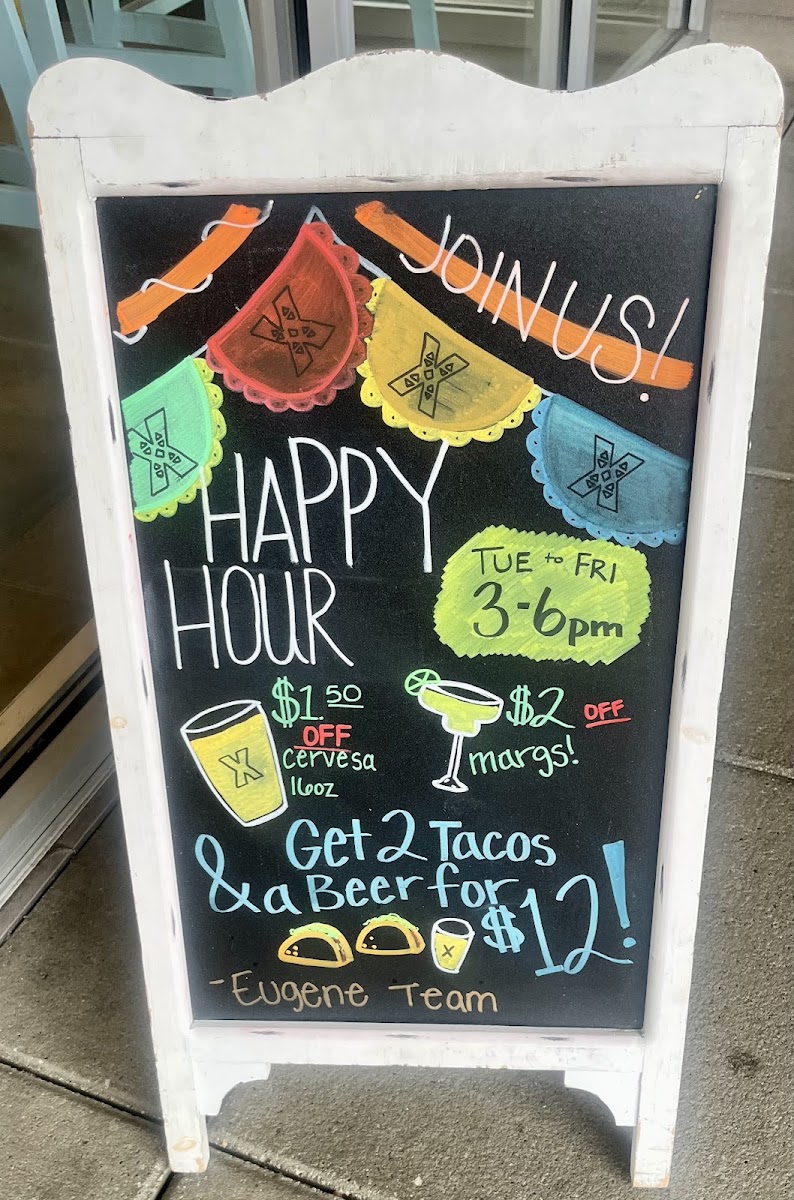 JOIN US!
X X X X
HAPPY
HOUR
TUE to FRI
3-6pm
$1.50
OFF
cervesa
16oz
X
$2 OFF
margs!
Get 2 Tacos
& a Beer for
$12!
X
-Eugene Team